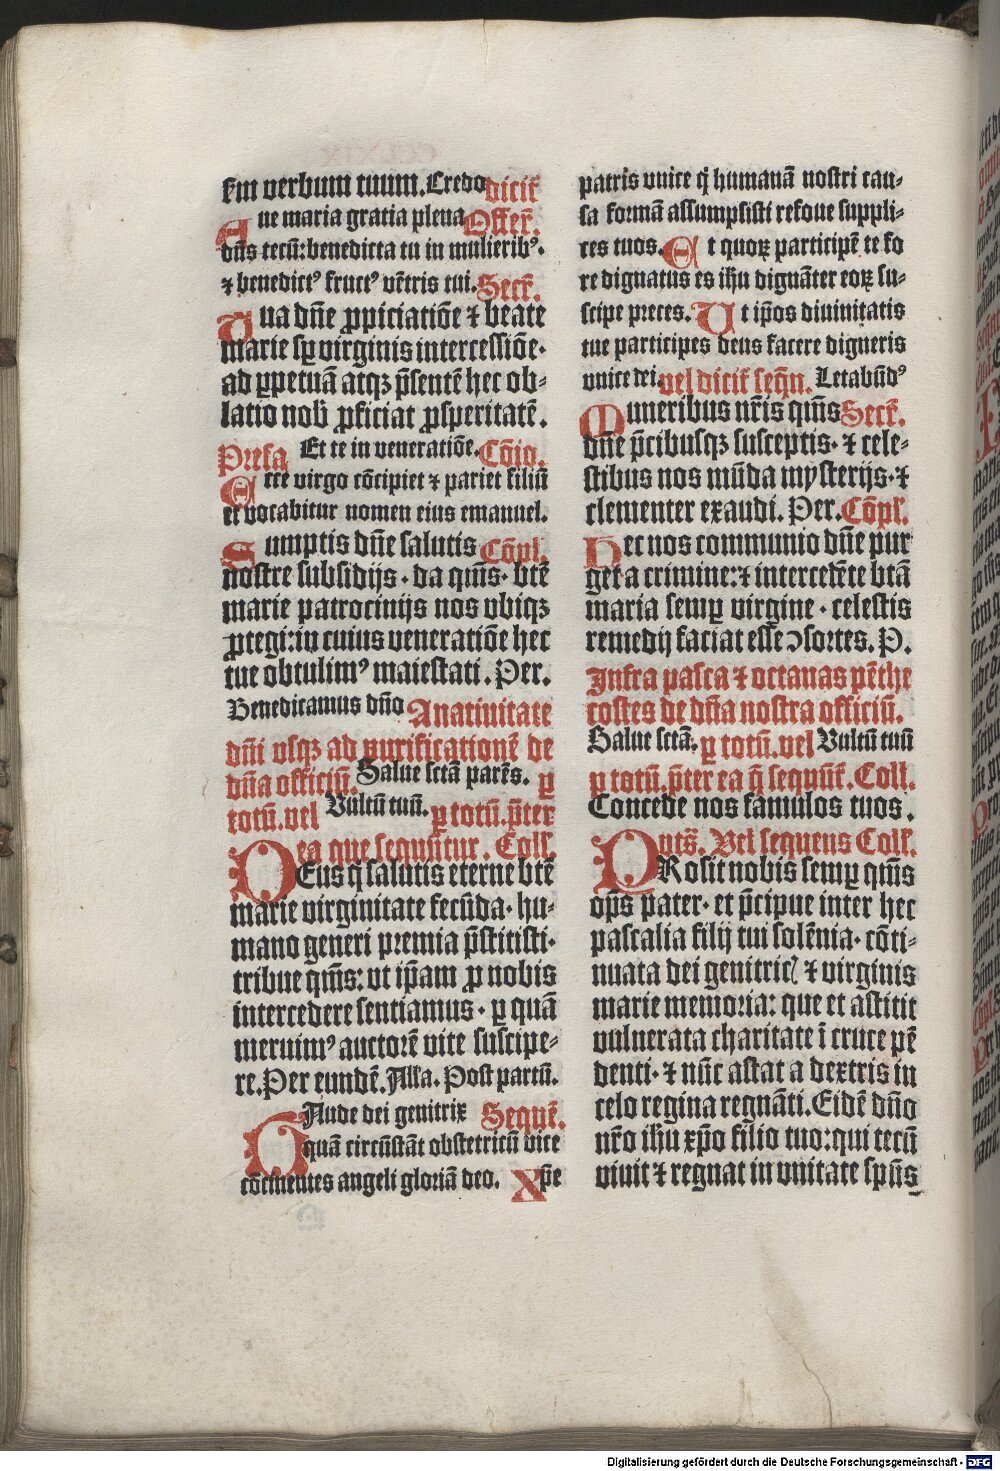 ẜm verbum tuum. Credo dicit᷑
Aue maria gratia plena Offer̄.
dn̄s tecū: benedicta tu in mulierib⁹.
⁊ benedict⁹ fruct⁹ vētris tui. Secr̄.
Tua dn̄e ꝓpiciatiōe ⁊ beate
marie sꝑ virginis intercessiōe·
ad ꝑpetuā atqꝫ p̄sentē hec ob-
latio nob̄ ꝓficiat ꝓsperitatē.
Prefa Et te in veneratiōe. Cōio.
Ecce virgo cōcipiet ⁊ pariet filiū
et vocabitur nomen eius emanuel.
Sumptis dn̄e salutis Cōpl.
nostre subsidijs· da qm̄s· btē
marie patrocinijs nos vbiqꝫ
ꝓtegi: in cuius veneratiōe hec
tue obtulim⁹ maiestati. Per.
Benedicamus dn̄o A natiuitate
dn̄i vsqꝫ ad purificationē de
dn̄a officiū. Salue sctā parēs. ꝑ
totū. vel Vultū tuū. ꝑ totū. p̄ter
ea que sequūtur. Coll᷑.
DEus q̄ salutis eterne btē
marie virginitate fecūda· hu-
mano generi premia p̄stitisti·
tribue qm̄s: vt ip̄am ꝓ nobis
intercedere sentiamus· ꝑ quā
meruim⁹ auctorē vite suscipe-
re. Per eundē. Alla. Post partū.
GAude dei genitrix Sequē.
quā circūstāt obstetricū vice
cōcinentes angeli gloriā deo. Xp̄e
patris vnice q̇ humanā nostri cau-
sa formā assumpsisti refoue suppli-
ces tuos. Et quoꝝ participē te fo
re dignatus es ih̄u dignāter eoꝝ su-
scipe preces. Ut ip̄os diuinitatis
tue participes deus facere digneris
vnice dei. vel dicit᷑ seqn̄. Letabūd⁹
Muneribus nr̄is qm̄s Secr̄.
dn̄e p̄cibusqꝫ susceptis· ⁊ cele-
stibus nos mūda mysterijs· ⁊
clementer exaudi. Per. Cōpl᷑.
Hec nos communio dn̄e pur
get a crimine: ⁊ intercedēte btā
maria semꝑ virgine· celestis
remedij faciat esse ↄsortes. P.
Infra pasca ⁊ octauas pēthe
costes de dn̄a nostra officiū.
Salue sctā. ꝑ totū. vel Vultū tuū
ꝑ totū. p̄ter ea q̄ sequūt᷑. Coll.
Concede nos famulos tuos.
Qūts̄. Vel sequens Coll᷑.
PRosit nobis semꝑ qm̄s
op̄s pater· et p̄cipue inter hec
pascalia filij tui solēnia· cōti-
nuata dei genitricꝭ ⁊ virginis
marie memoria: que et astitit
vulnerata charitate ī cruce pē
denti· ⁊ nūc astat a dextris in
celo regina regnāti. Eidē dn̄o
nr̄o ih̄u xp̄o filio tuo: qui tecū
viuit ⁊ regnat in vnitate spūs
Digitalisierung gefördert durch die Deutsche Forschungsgemeinschaft - DFG